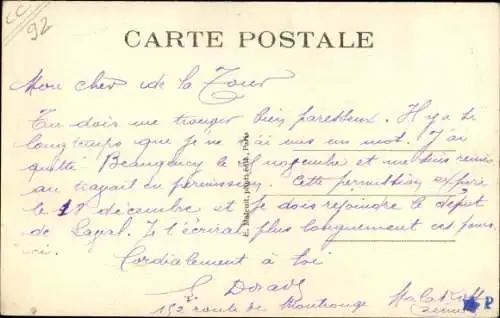 CC
92
CARTE POSTALE
Mon cher de la Tour
Tu dois me trouver bien paresseux. Il y a si
longtemps que je ne t'ai mis un mot. J'ai
quitté Beaugency le 8 novembre et me suis remis
au travail en permission. Cette permission expire
le 18 décembre et je dois rejoindre le dépôt
de Laval. Je t'écrirai plus longuement ces jours
ici.
Cordialement à toi
Dorad
152 route de Montrouge Malakoff
Seine
E. Malcuit, phot. édit., Paris
P